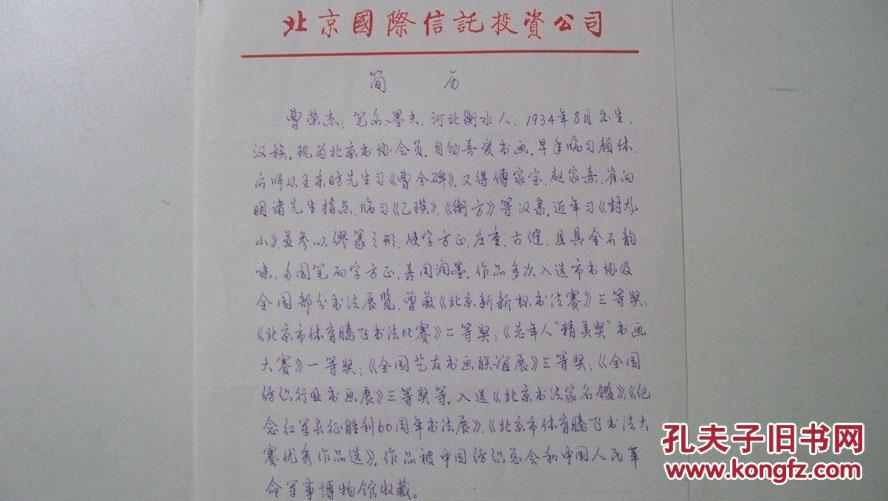 北京國際信託投資公司
简 历
曹荣杰，笔名墨夫，河北衡水人，1934年8月出生，
汉族。现为北京书协会员。自幼喜爱书画。早年临习颜体，
后师从王东昉先生习《曹全碑》。又得傅家宝、赵家熹、崔向
明诸先生指点，临习《乙瑛》、《衡方》等汉隶。近年习《封龙
山》並参以缪篆之形，使字方正、庄重、古健，且具金石韵
味。多圆笔而字方正，喜用润墨。作品多次入选市书协及
全国部分书法展览，曾获《北京新新杯书法赛》三等奖；
《北京市体育腾飞书法比赛》二等奖；《老年人“精美奖”书画
大赛》一等奖；《全国艺友书画联谊展》三等奖；《全国
纺织行业书画展》三等奖等。入选《北京书法家名鑑》、《纪
念红军长征胜利60周年书法展》、《北京市体育腾飞书法大
赛优秀作品选》。作品被中国纺织总会和中国人民革
命军事博物馆收藏。
孔夫子旧书网
www.kongfz.com